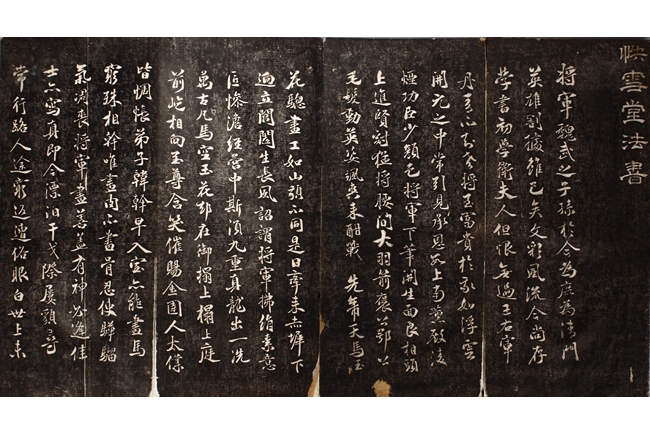 快雪堂法書
將軍魏武之子孫於今為庶為清門
英雄割據雖已矣文彩風流今尚存
學書初學衛夫人但恨無過王右軍
丹青不知老將至富貴於我如浮雲
開元之中常引見承恩數上南薰殿淩
煙功臣少顏色將軍下筆開生面良相頭
上進賢冠猛將腰間大羽箭褒公鄂公
毛髮動英姿颯爽來酣戰 先帝天馬玉
花驄畫工如山貌不同是日牽來赤墀下
迥立閶闔生長風詔謂將軍拂絹素意
匠慘澹經營中斯須九重真龍出一洗
萬古凡馬空玉花却在御榻上榻上庭
前屹相向至尊含笑催賜金圉人太僕
皆惆悵弟子韓幹早入室亦能畫馬
窮殊相幹唯畫肉不畫骨忍使驊騮
氣凋喪將軍畫善蓋有神必逢佳
士亦寫真即今漂泊干戈際屢貌尋
常行路人途窮返遭俗眼白世上未